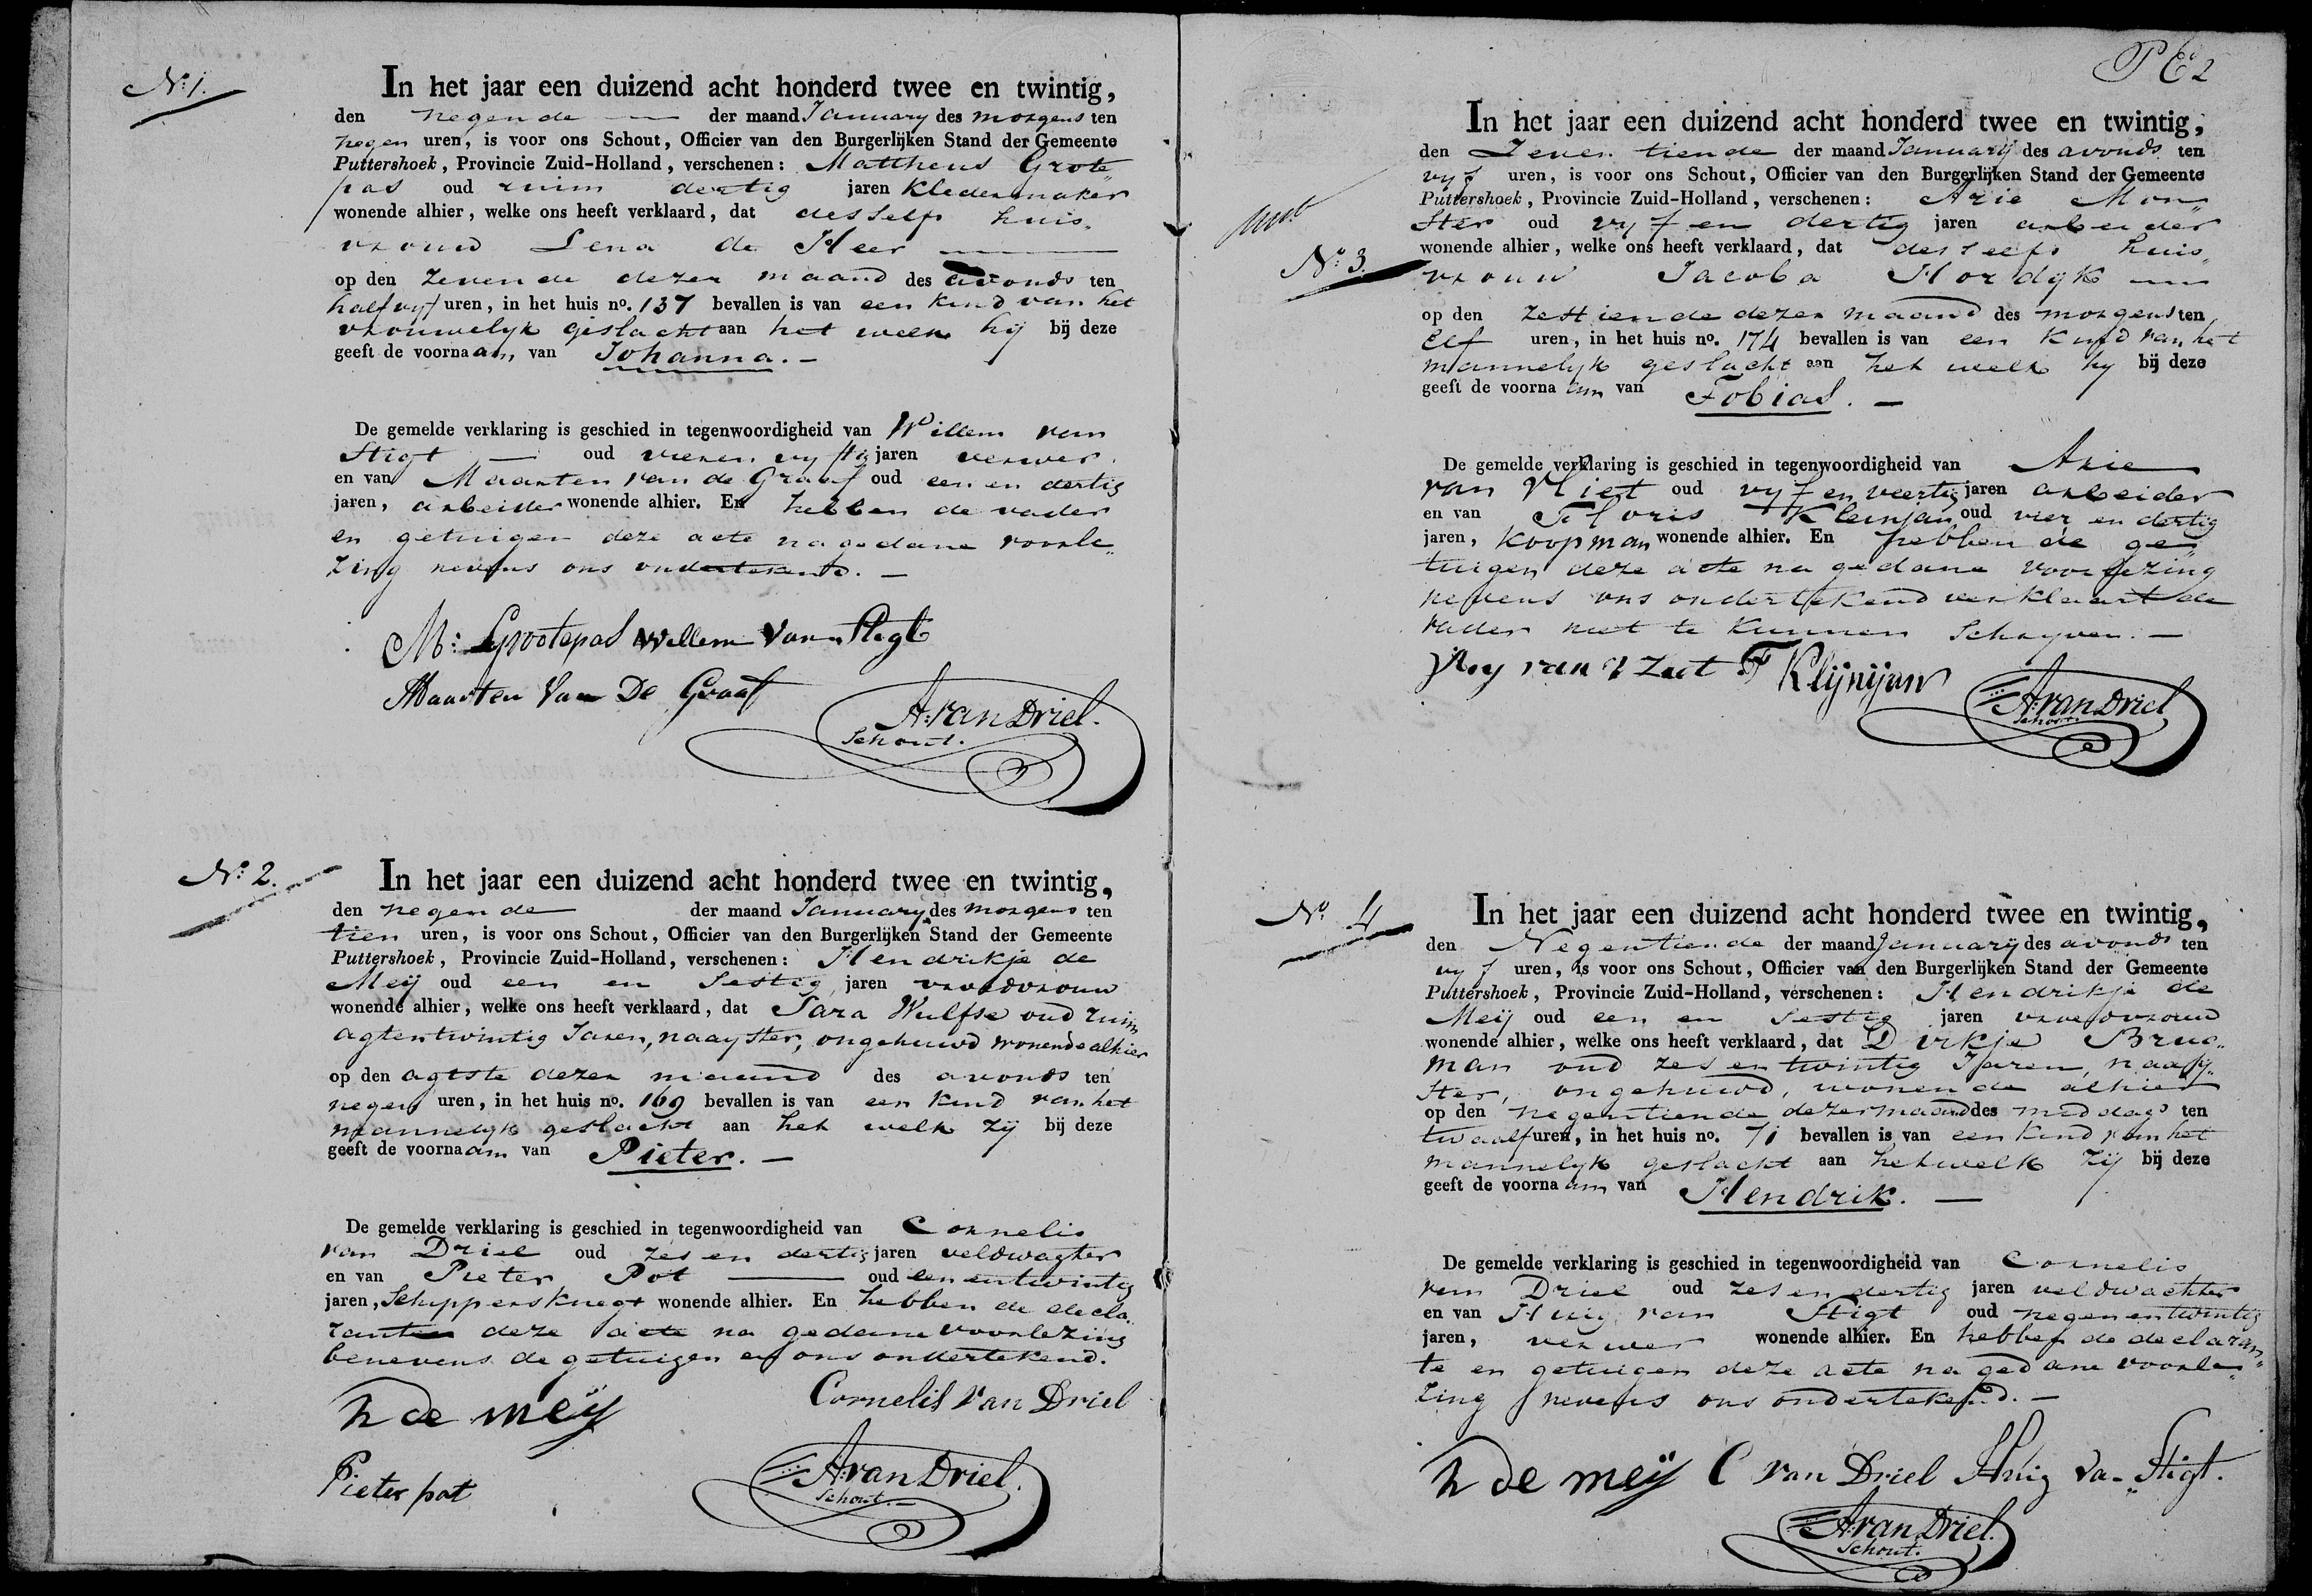 No. 1.
In het jaar een duizend acht honderd twee en twintig,
den negende der maand January des morgens ten
negen uren, is voor ons Schout, Officier van den Burgerlijken Stand der Gemeente
Puttershoek, Provincie Zuid-Holland, verschenen: Mattheus Grote
pas oud ruim dertig jaren kledermaker
wonende alhier, welke ons heeft verklaard, dat desselfs huis„
vrouw Lena de Heer
op den zevende dezer maand des avonds ten
half vyf uren, in het huis no. 137 bevallen is van een kind van het
vrouwelyk geslacht aan het welk hij bij deze
geeft de voornaam van Johanna. —
De gemelde verklaring is geschied in tegenwoordigheid van Willem van
Stigt — oud vier en vyftig jaren verwer
en van Maarten van de Graaf oud een en dertig
jaren, arbeider wonende alhier. En hebben de vader
en getuigen deze acte na gedane voorle„
zing nevens ons ondertekend. —
M: Grootepas Willem van Stigt
Maarten Van De Graaf
A. van Driel.
Schout.
No. 2.
In het jaar een duizend acht honderd twee en twintig,
den negende der maand January des morgens ten
tien uren, is voor ons Schout, Officier van den Burgerlijken Stand der Gemeente
Puttershoek, Provincie Zuid-Holland, verschenen: Hendrikje de
Meij oud een en sestig jaren vroedvrouw
wonende alhier, welke ons heeft verklaard, dat Sara Wulfse oud ruim
agtentwintig Jaren, naayster, ongehuwd wonende alhier
op den agtste dezer maand des avonds ten
negen uren, in het huis no. 169 bevallen is van een kind van het
mannelyk geslacht aan het welk zij bij deze
geeft de voornaam van Pieter. —
De gemelde verklaring is geschied in tegenwoordigheid van Cornelis
van Driel oud zes en dertig jaren veldwagter
en van Pieter Pot oud een en twintig
jaren, Schippersknegt wonende alhier. En hebben de decla„
rante deze acte na gedane voorlezing
benevens de getuigen en ons ondertekend.
h de meÿ Cornelis Van Driel
Pieter pot
A. van Driel.
Schout.
P E 2
In het jaar een duizend acht honderd twee en twintig,
den Zeven tiende der maand January des avonds ten
vyf uren, is voor ons Schout, Officier van den Burgerlijken Stand der Gemeente
Puttershoek, Provincie Zuid-Holland, verschenen: Arie Mon„
No. 3.
ster oud vyf en dertig jaren arbeider
wonende alhier, welke ons heeft verklaard, dat desselfs huis„
vrouw Jacoba Hordyk
op den zestiende dezer maand des morgens ten
elf uren, in het huis no. 174 bevallen is van een kind van het
mannelyk geslacht aan het welk hy bij deze
geeft de voornaam van Tobias. —
De gemelde verklaring is geschied in tegenwoordigheid van Arie
van Vliet oud vyf en veertig jaren arbeider
en van Floris Kleinjan oud vier en dertig
jaren, Koopman wonende alhier. En hebben de ge„
tuigen deze acte na gedane voorlezing
nevens ons ondertekend verklaart de
vader niet te kunnen Schryven. —
F Klijnjan
A. van Driel
Schout.
No. 4
In het jaar een duizend acht honderd twee en twintig,
den Negentiende der maand January des avonds ten
vyf uren, is voor ons Schout, Officier van den Burgerlijken Stand der Gemeente
Puttershoek, Provincie Zuid-Holland, verschenen: Hendrikje de
Meij oud een en sestig jaren vroedvrouw
wonende alhier, welke ons heeft verklaard, dat Dirkje Brug„
man oud zes en twintig Jaren, naaij„
ster, ongehuwd, wonende alhier
op den negentiende dezer maand des middags ten
twaalf uren, in het huis no. 71 bevallen is van een kind van het
mannelyk geslacht aan hetwelk zij bij deze
geeft de voornaam van Hendrik. —
De gemelde verklaring is geschied in tegenwoordigheid van Cornelis
van Driel oud zes en dertig jaren veldwachter
en van Huig van Stigt oud negen en twintig
jaren, verwer wonende alhier. En hebben de declaran„
te en getuigen deze acte na gedane voorle„
zing nevens ons ondertekend. —
h de meÿ C van Driel Huig van Stigt.
A. van Driel.
Schout.